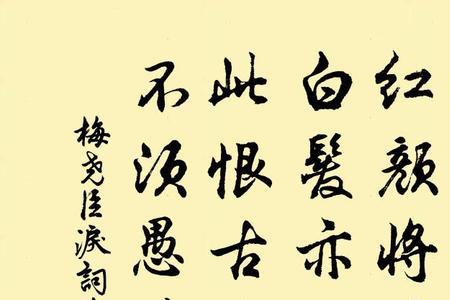 红颜将
白髮亦
此恨古
不须愚
梅尧臣淚詞